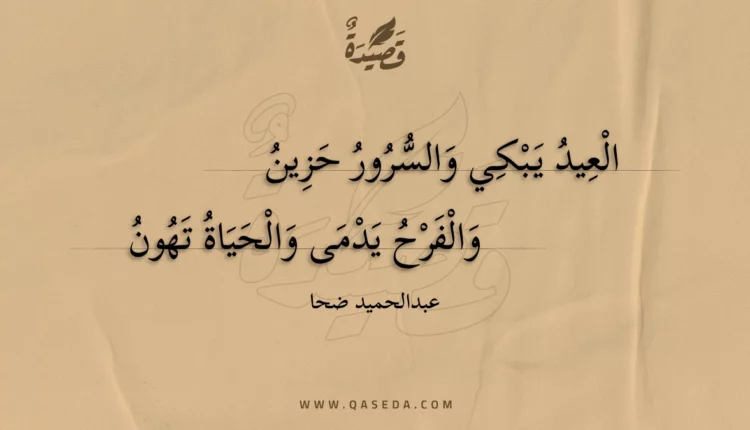 قَصِيدَةٌ
الْعِيدُ يَبْكِي وَالسُّرُورُ حَزِينُ
وَالْفَرْحُ يَدْمَى وَالْحَيَاةُ تَهُونُ
عبدالحميد ضحا
WWW.QASEDA.COM